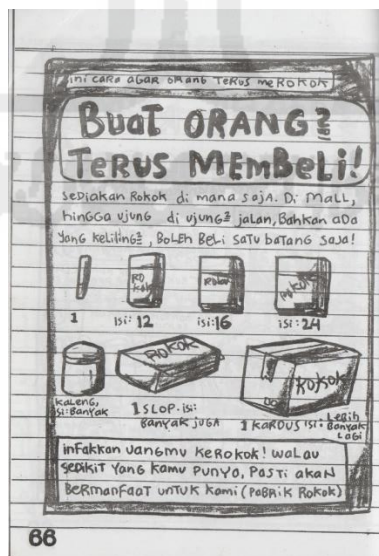 ini cara agar orang Terus meRokok
BuaT ORANG2 INI
TERUS MEMBeLi!
seDiakan Rokok di mana saja. Di MaLL,
hingga ujung di ujung2 jalan, Bahkan aDa
Yang keLiLing2, BoLeh BeLi saTu baTang saja!
RO kok
Rokok
Rokok
1
isi: 12
isi: 16
isi: 24
Rokok
Rokok
kaLeng,
isi: Banyak
1 SLOP. isi:
Banyak juga
1 KARDUS isi: Lebih
Banyak
Lagi
infakkan uangmu keRokok! waLau
seDikit Yang kamu punya, Pasti akaN
BeRmanfaaT unTuk kami (PaBRik Rokok)
66